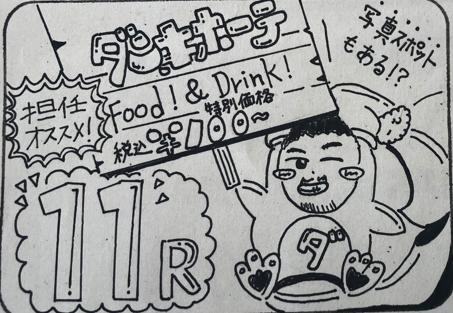 ダンキホーテ
Food! & Drink!
特別価格
税込 ¥100~
写真スポット
もある!?
担任
オススメ!
11R
ダ